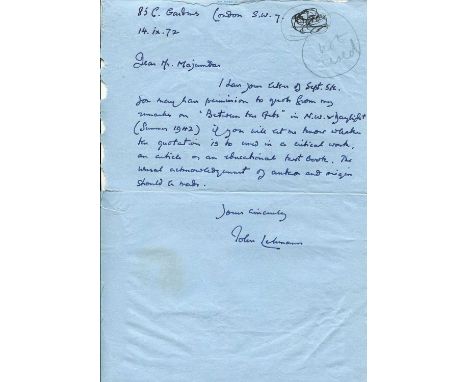 85 C. Gardens London S.W.7.
14.ix.72
not used
Dear Mr. Majumdar
I have your letter of Sept. 5th.
You may have permission to quote from my
remarks on "Between the Acts" in N.W. & Daylight
(Summer 1942) if you will let me know whether
the quotation is to be used in a critical work,
an article or an educational text book. The
usual acknowledgement of author and origin
should be made.
Yours sincerely
John Lehmann